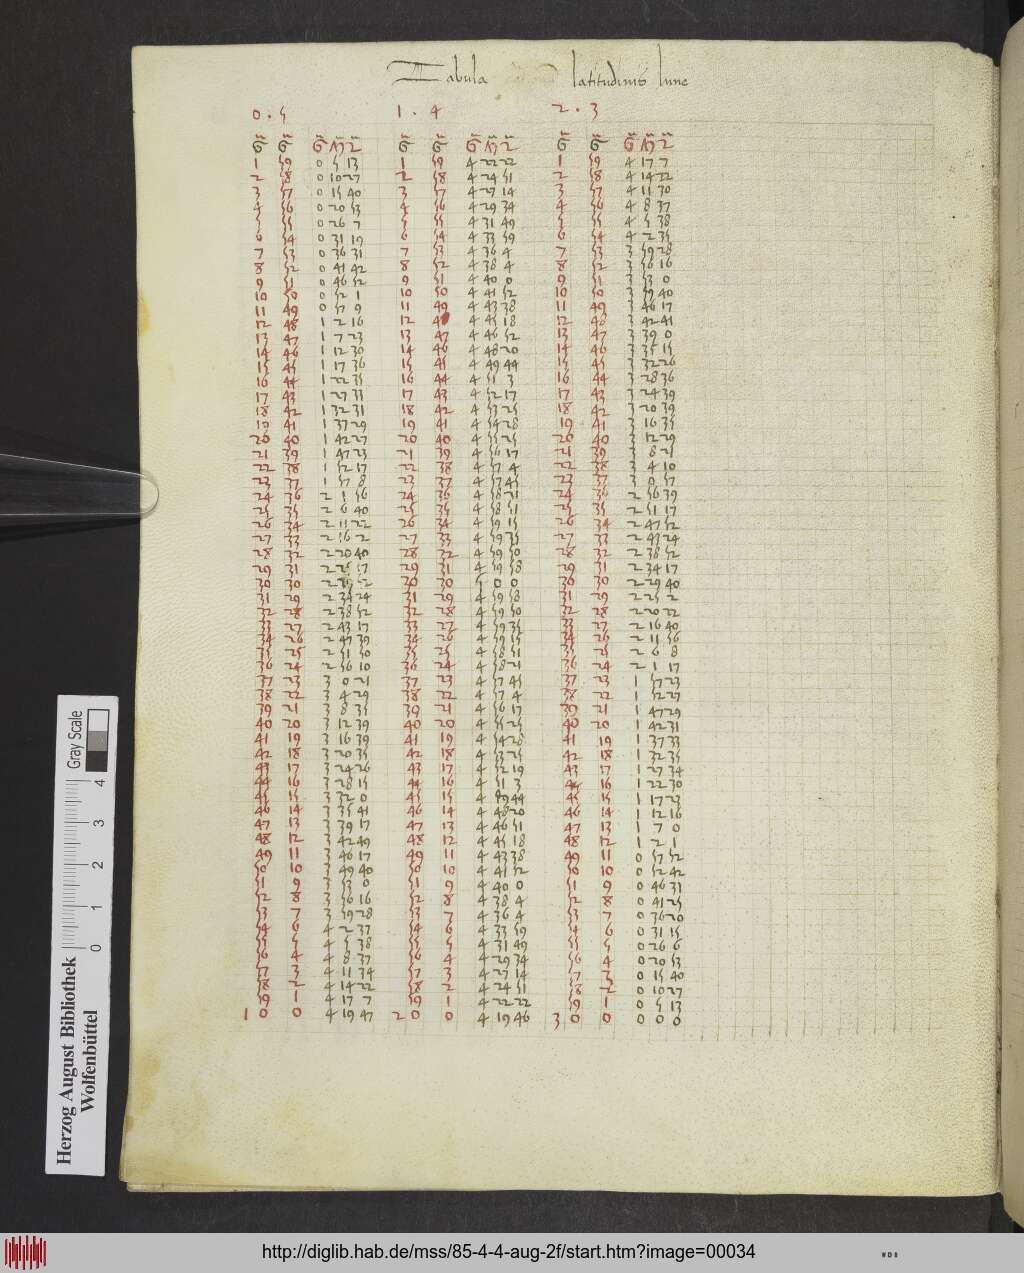 Tabula latitudinis lune
0 . 5 1 . 4 2 . 3
G G G M 2 G G G M 2 G G G M 2
1 59 0 5 13 1 59 4 22 22 1 59 4 17 7
2 58 0 10 27 2 58 4 24 51 2 58 4 14 22
3 57 0 15 40 3 57 4 27 14 3 57 4 11 30
4 56 0 20 53 4 56 4 29 34 4 56 4 8 37
5 55 0 26 7 5 55 4 31 49 5 55 4 5 38
6 54 0 31 19 6 54 4 33 59 6 54 4 2 35
7 53 0 36 31 7 53 4 36 4 7 53 3 59 28
8 52 0 41 42 8 52 4 38 4 8 52 3 56 16
9 51 0 46 52 9 51 4 40 0 9 51 3 53 0
10 50 0 52 1 10 50 4 41 52 10 50 3 49 40
11 49 0 57 9 11 49 4 43 38 11 49 3 46 17
12 48 1 2 16 12 48 4 45 18 12 48 3 42 41
13 47 1 7 23 13 47 4 46 52 13 47 3 39 0
14 46 1 12 30 14 46 4 48 20 14 46 3 35 15
15 45 1 17 36 15 45 4 49 44 15 45 3 32 26
16 44 1 22 35 16 44 4 51 3 16 44 3 28 36
17 43 1 27 33 17 43 4 52 17 17 43 3 24 39
18 42 1 32 31 18 42 4 53 25 18 42 3 20 39
19 41 1 37 29 19 41 4 54 28 19 41 3 16 35
20 40 1 42 27 20 40 4 55 25 20 40 3 12 29
21 39 1 47 23 21 39 4 56 17 21 39 3 8 21
22 38 1 52 17 22 38 4 57 4 22 38 3 4 10
23 37 1 57 8 23 37 4 57 45 23 37 3 0 57
24 36 2 1 56 24 36 4 58 21 24 36 2 56 39
25 35 2 6 40 25 35 4 58 51 25 35 2 51 17
26 34 2 11 22 26 34 4 59 15 26 34 2 47 52
27 33 2 16 2 27 33 4 59 35 27 33 2 43 24
28 32 2 20 40 28 32 4 59 50 28 32 2 38 52
29 31 2 25 17 29 31 4 59 58 29 31 2 34 17
30 30 2 29 52 30 30 5 0 0 30 30 2 29 40
31 29 2 34 24 31 29 4 59 58 31 29 2 25 2
32 28 2 38 52 32 28 4 59 50 32 28 2 20 22
33 27 2 43 17 33 27 4 59 35 33 27 2 16 40
34 26 2 47 39 34 26 4 59 15 34 26 2 11 56
35 25 2 51 50 35 25 4 58 51 35 25 2 6 8
36 24 2 56 10 36 24 4 58 21 36 24 2 1 17
37 23 3 0 21 37 23 4 57 45 37 23 1 57 23
38 22 3 4 29 38 22 4 57 4 38 22 1 52 27
39 21 3 8 35 39 21 4 56 17 39 21 1 47 29
40 20 3 12 39 40 20 4 55 25 40 20 1 42 31
41 19 3 16 39 41 19 4 54 28 41 19 1 37 33
42 18 3 20 35 42 18 4 53 25 42 18 1 32 35
43 17 3 24 26 43 17 4 52 19 43 17 1 27 34
44 16 3 28 15 44 16 4 51 3 44 16 1 22 30
45 15 3 32 0 45 15 4 49 44 45 15 1 17 23
46 14 3 35 41 46 14 4 48 20 46 14 1 12 16
47 13 3 39 17 47 13 4 46 51 47 13 1 7 0
48 12 3 42 49 48 12 4 45 18 48 12 1 2 1
49 11 3 46 17 49 11 4 43 38 49 11 0 57 52
50 10 3 49 40 50 10 4 41 52 50 10 0 52 42
51 9 3 53 0 51 9 4 40 0 51 9 0 46 31
52 8 3 56 16 52 8 4 38 4 52 8 0 41 25
53 7 3 59 28 53 7 4 36 4 53 7 0 36 20
54 6 4 2 37 54 6 4 33 59 54 6 0 31 15
55 5 4 5 38 55 5 4 31 49 55 5 0 26 6
56 4 4 8 37 56 4 4 29 34 56 4 0 20 53
57 3 4 11 34 57 3 4 27 14 57 3 0 15 40
58 2 4 14 22 58 2 4 24 51 58 2 0 10 27
59 1 4 17 7 59 1 4 22 22 59 1 0 5 13
1 0 0 4 19 47 2 0 0 4 19 46 3 0 0 0 0 0
Herzog August Bibliothek
Wolfenbüttel
0 1 2 3 4
Gray Scale
http://diglib.hab.de/mss/85-4-4-aug-2f/start.htm?image=00034
WDB